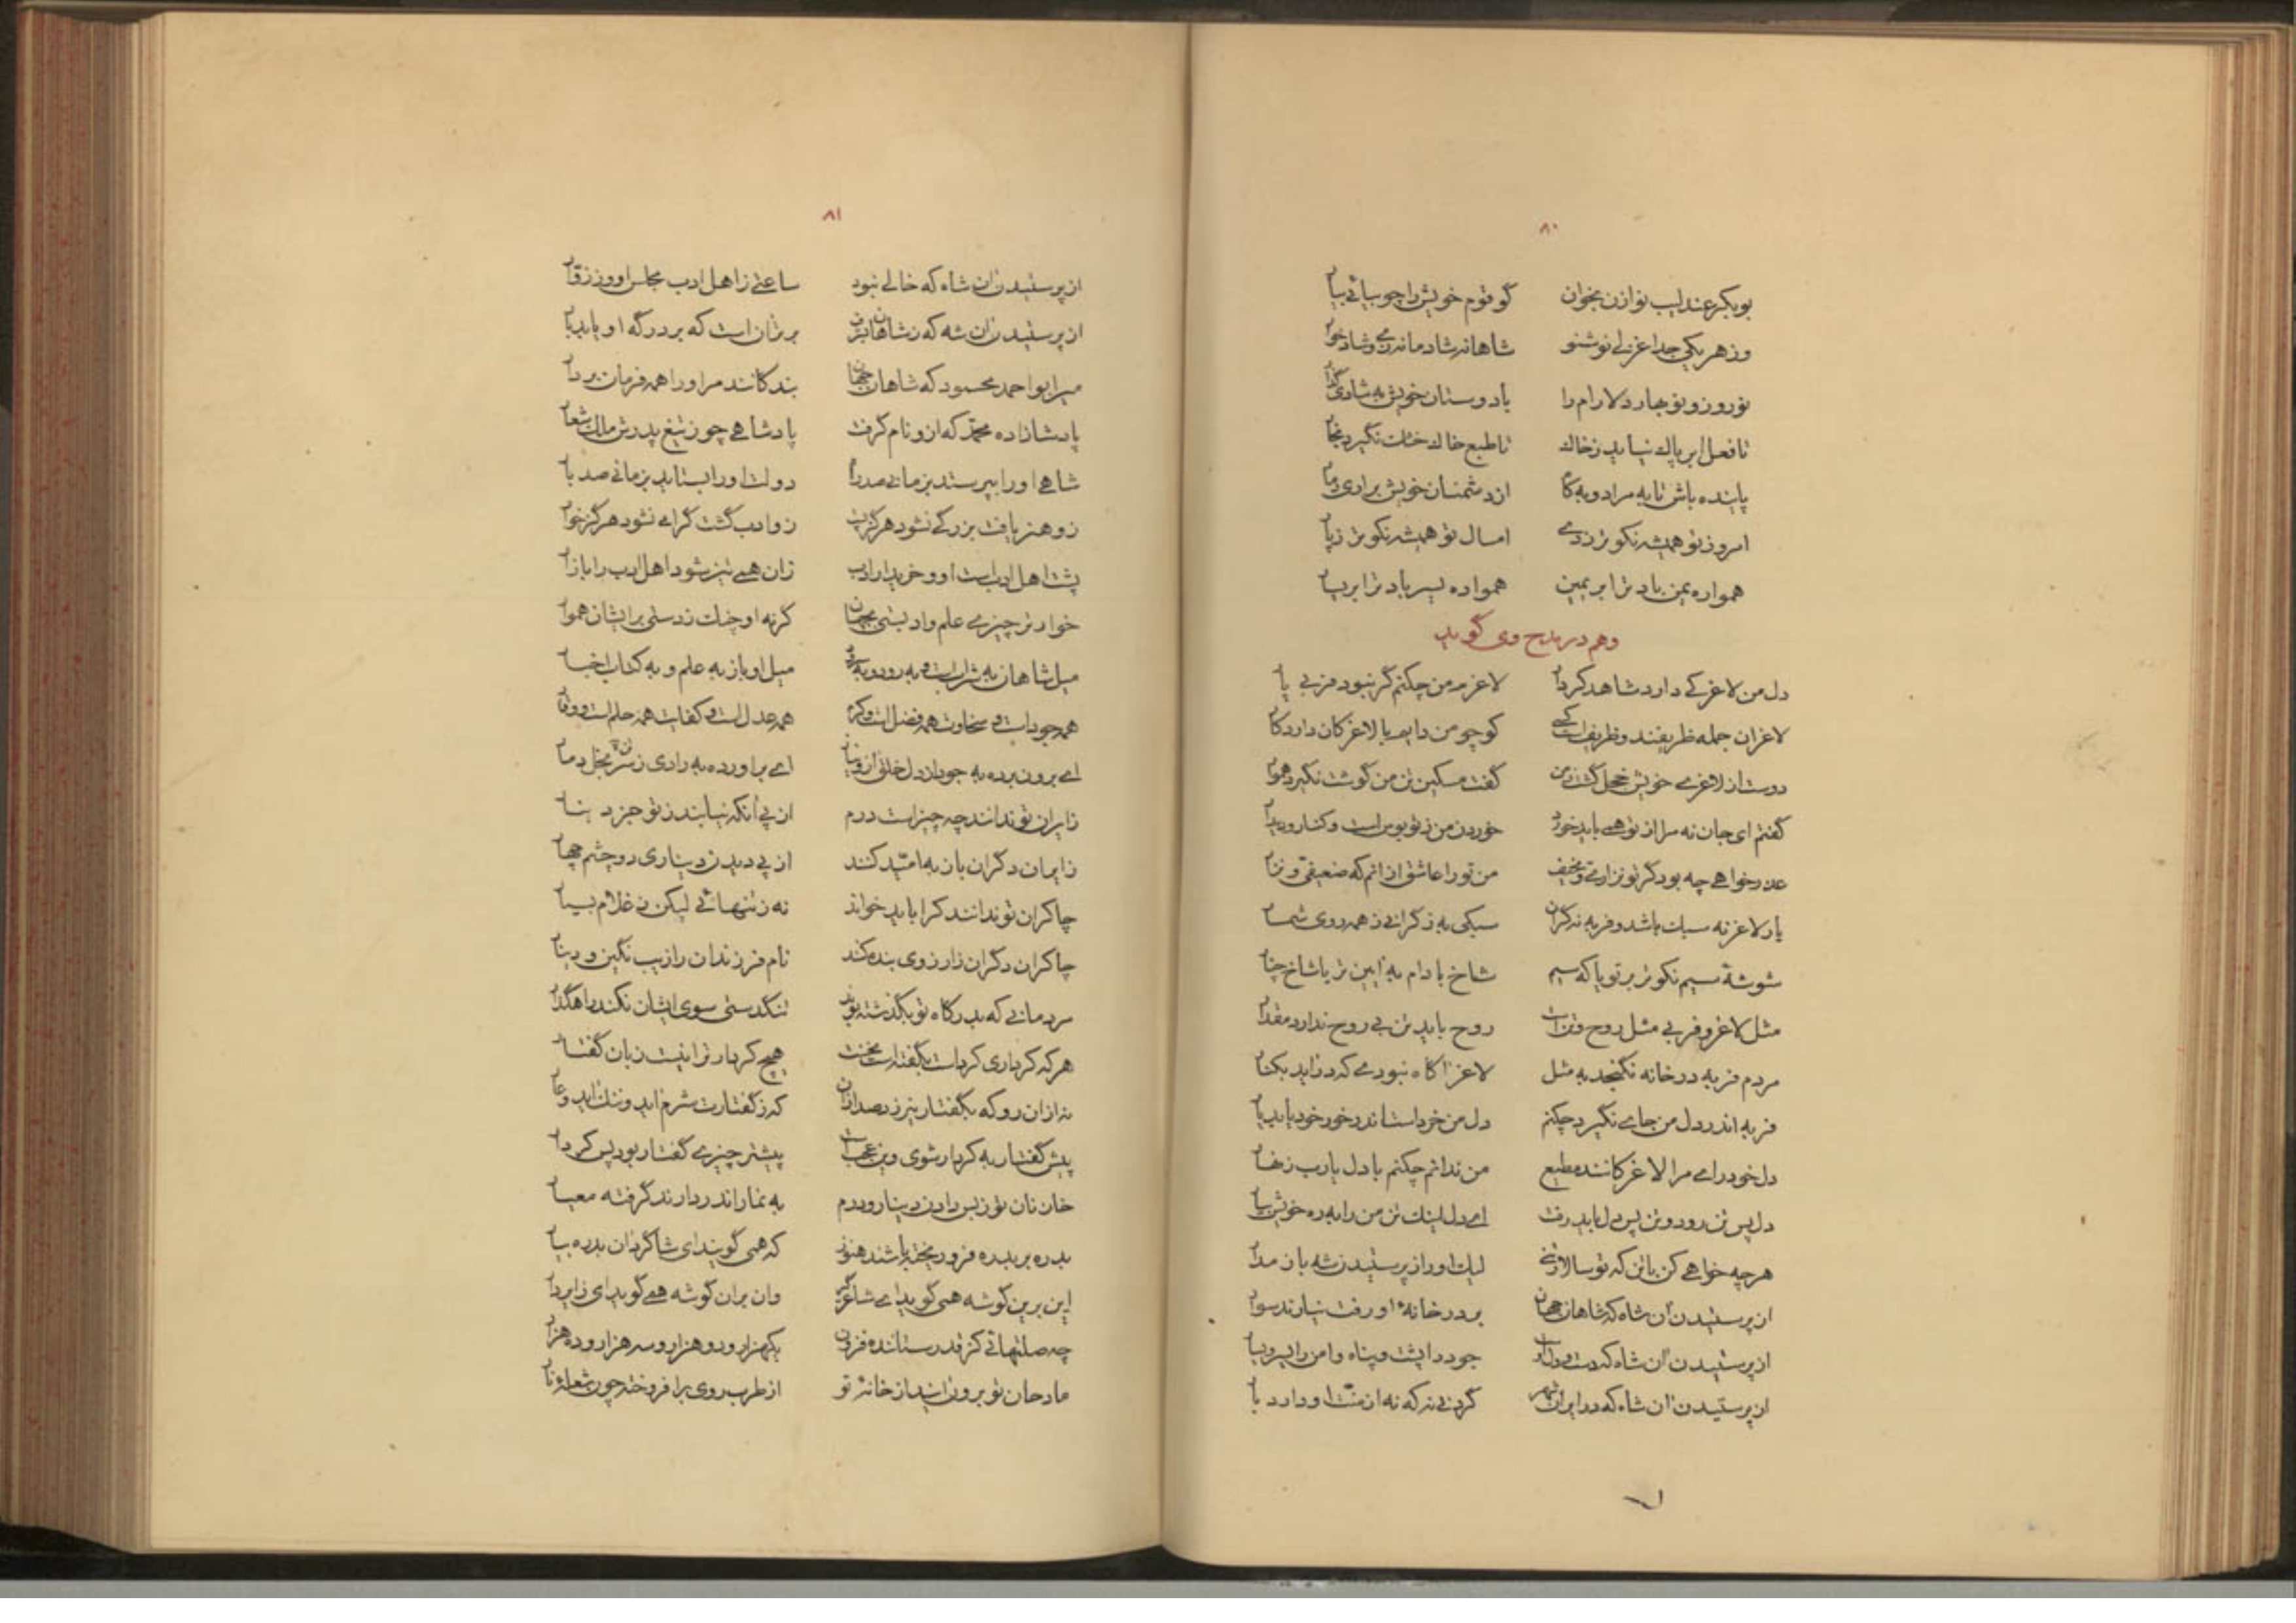 ۸۰
بوبکر عندلیب نوازن بخوان گو قوم خویش را چو بیائی بیار
وز هر یکی جدا غزلی نو شنو شاهانه شادمانه زی و شادخوار
نوروز و نوبهار دلارام را با دوستان خویش به شادی گذار
تا فعل ابر پاک نیاید ز خاک تا طبع خاک خشک نگیرد بخار
پاینده باش تا به مراد و به کام از دشمنان خویش براری دمار
امروز تو همیشه نکوتر ز دی امسال تو همیشه نکوتر ز پار
همواره یمن باد ترا بر یمین همواره یسر باد ترا بر یسار
وهم در مدح وی گوید
دل من لاغرکی دارد شاهد کردار لاغرم من چکنم گر نبود فربی یار
لاغران جمله ظریفند و ظریف است کسی کو چو من دایم با لاغرکان دارد کار
دوست از لاغری خویش خجل گشت ز من گفت مسکین تن من گوشت نگیرد هموار
گفتم ای جان نه مرا از تو همی باید خورد خوردن من ز تو بوس است و کنار و دیدار
عذر خواهی چه بود گر تو نزاری و نحیف من تو را عاشق ازانم که ضعیفی و نزار
یار لاغر نه سبک باشد و فربه نه گران سبکی به ز گرانی ز همه روی شمار
شوشهٔ سیم نکوتر بر تو یا که سیم شاخ بادام به آیین تر یا شاخ چنار
مثل لاغر و فربی مثل روح و تن است روح باید تن بی روح ندارد مقدار
مردم فربه در خانه نگنجد به مثل لاغر آگاه نبودی که دراید بکنار
فربه اندر دل من جای نگیرد چکنم دل من خرد است اندر خور خود باید یار
دل خودرای مرا لاغرکانند مطیع من ندانم چکنم با دل یارب زنهار
دل پس تن رود و تن پس دل باید رفت ای دل اینک تن من را به ره خویش بیار
هرچه خواهی کن با تن که تو سالار تنی لیک او را ز پرستیدن شه باز مدار
از پرستیدن آن شاه که شاهان جهان بر در خانهٔ او رفت نیارند سوار
از پرستیدن آن شاه که دست و دل او جود را پشت و پناه و امن را یسر و یسار
از پرستیدن آن شاه که در ایران شهر گردنی نه که نه از منت او دارد بار
۸۱
از پرستیدن آن شاه که خالی نبود ساعتی ز اهل ادب مجلس او وز زوار
از پرستیدن آن شه که ز شاهان برتر برتر آن است که بر درگه او یابد بار
میر ابو احمد محمود که شاهان جهان بندگانند مر او را همه فرمان بردار
پادشازاده محمد که ازو نام گرفت پادشاهی چو ز تیغ پدرش ملک شعار
شاهی او را بپرستد بزمانی صد راه دولت او را بستاید بزمانی صد بار
زو هنر یافت بزرگی نشود هرگز پست زو ادب گشت گرامی نشود هرگز خوار
پشت اهل ادب است او و خریدار ادب زان همی تیز شود اهل ادب را بازار
خوارتر چیزی علم و ادبستی بجهان گر نه او چنک زدستی بر ایشان هموار
میل شاهان به شرابست و به رود و به سرود میل او باز به علم و به کتاب اخبار
همه جود است و سخاوت همه فضل است و کرم همه عدل است و کفایت همه حلم است و وقار
ای برون برده به جود از دل خلق از و نیاز ای براورده به رادی ز سر بخل دمار
زایران تو ندانند چه چیزست درم از پی آنکه نیابند ز تو جز دینار
زایران دگران باز به امید کنند از پی دیدن دیناری دو چشم چهار
چاکران تو ندانند کرا باید خواند نه ز تنهائی لیکن ز غلام بسیار
چاکران دگران ز آرزوی بنده کنند نام فرزندان را زیب نگین و دینار
مردمانی که به درگاه تو بگذشته بوند تنگدستی سوی ایشان نکند راهگذار
هر که کرداری کردست بگفتست نخست هیچ کردار ترا نیست زبان گفتار
نه ازان رو که بگفتار نیرزد صد ازان که ز گفتارت شرم آید و ننگ آید و عار
پیش گفتار به کردار شوی وین عجب است پیشتر چیزی گفتار بود پس کردار
خازنان تو ز بس دادن دینار و درم به نماز اندر دارند گرفته معیار
بدره بر بدره فرو ریخته باشند هنوز که همی گویند ای شاگردان بدره بیار
این برین گوشه همی گوید ای شاعر گیر وان بران گوشه همی گوید ای زایر دار
چه صلتهائی کز قدر ستاننده فزون یکهزار و دو هزار و سه هزار و ده هزار
مادحان تو برون آیند از خانهٔ تو از طرب روی برافروخته چون شعلهٔ نار